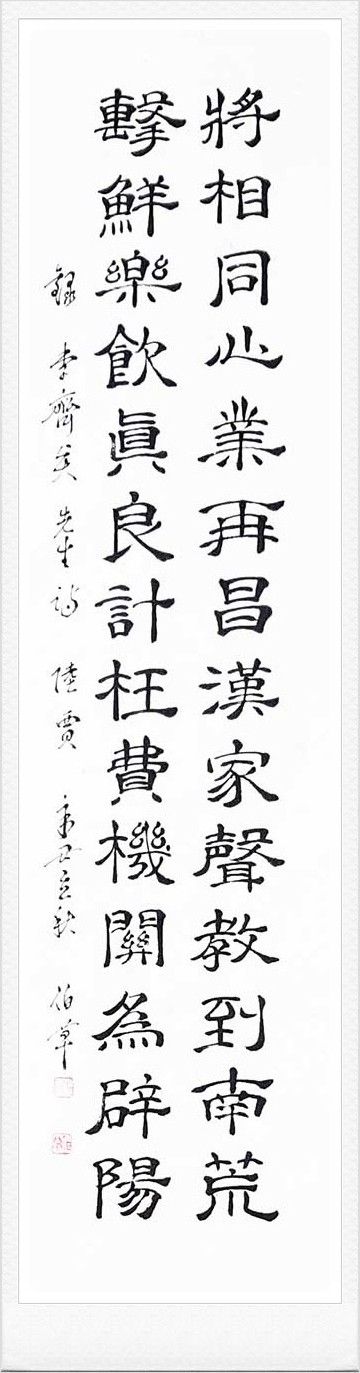 將相同心業再昌漢家聲教到南荒
擊鮮樂飲真良計枉費機關為辟陽
錄 李齊芳先生詩 陸賈 辛丑立秋 伯葦